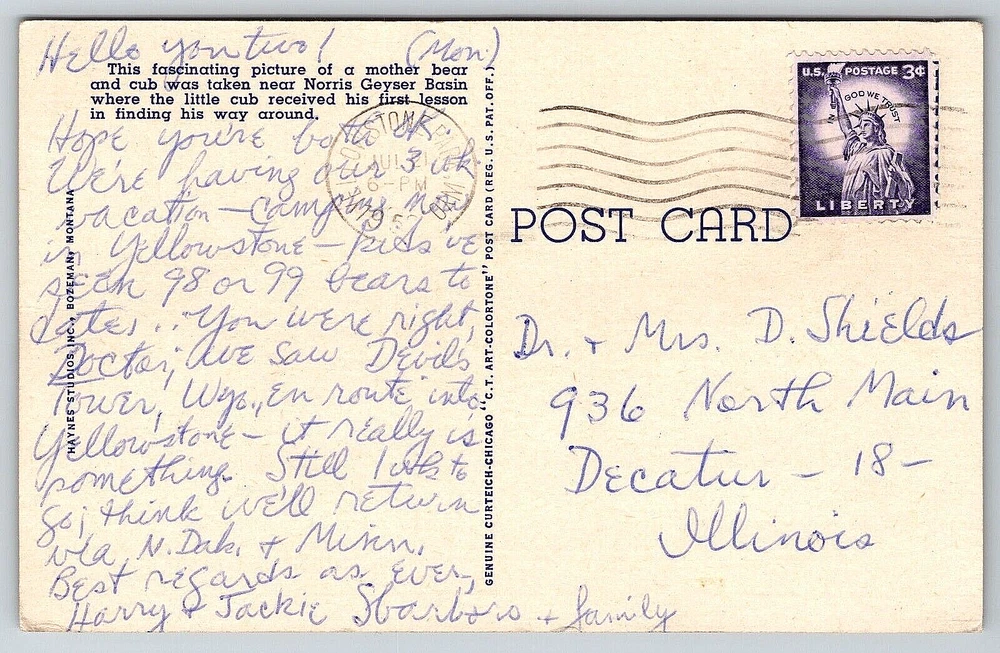 Hello you two! (Mon.)
This fascinating picture of a mother bear
and cub was taken near Norris Geyser Basin
where the little cub received his first lesson
in finding his way around.
Hope you're both OK.
We're having our 3 wk
vacation — camping now
in Yellowstone — kids've
seen 98 or 99 bears to
date... You were right,
Doctor, we saw Devil's
Tower, Wyo., en route into
Yellowstone — it really is
something. Still 1 wk to
go; think we'll return
via N. Dak. + Minn.
Best regards as ever,
Harry + Jackie Sbarboro + family
HAYNES STUDIOS INC., BOZEMAN, MONTANA
GENUINE CURTEICH-CHICAGO "C.T. ART-COLORTONE" POST CARD (REG. U.S. PAT. OFF.)
JUL 21
6-PM
U.S. POSTAGE 3¢
IN GOD WE TRUST
LIBERTY
POST CARD
Dr. + Mrs. D. Shields
936 North Main
Decatur — 18 —
Illinois